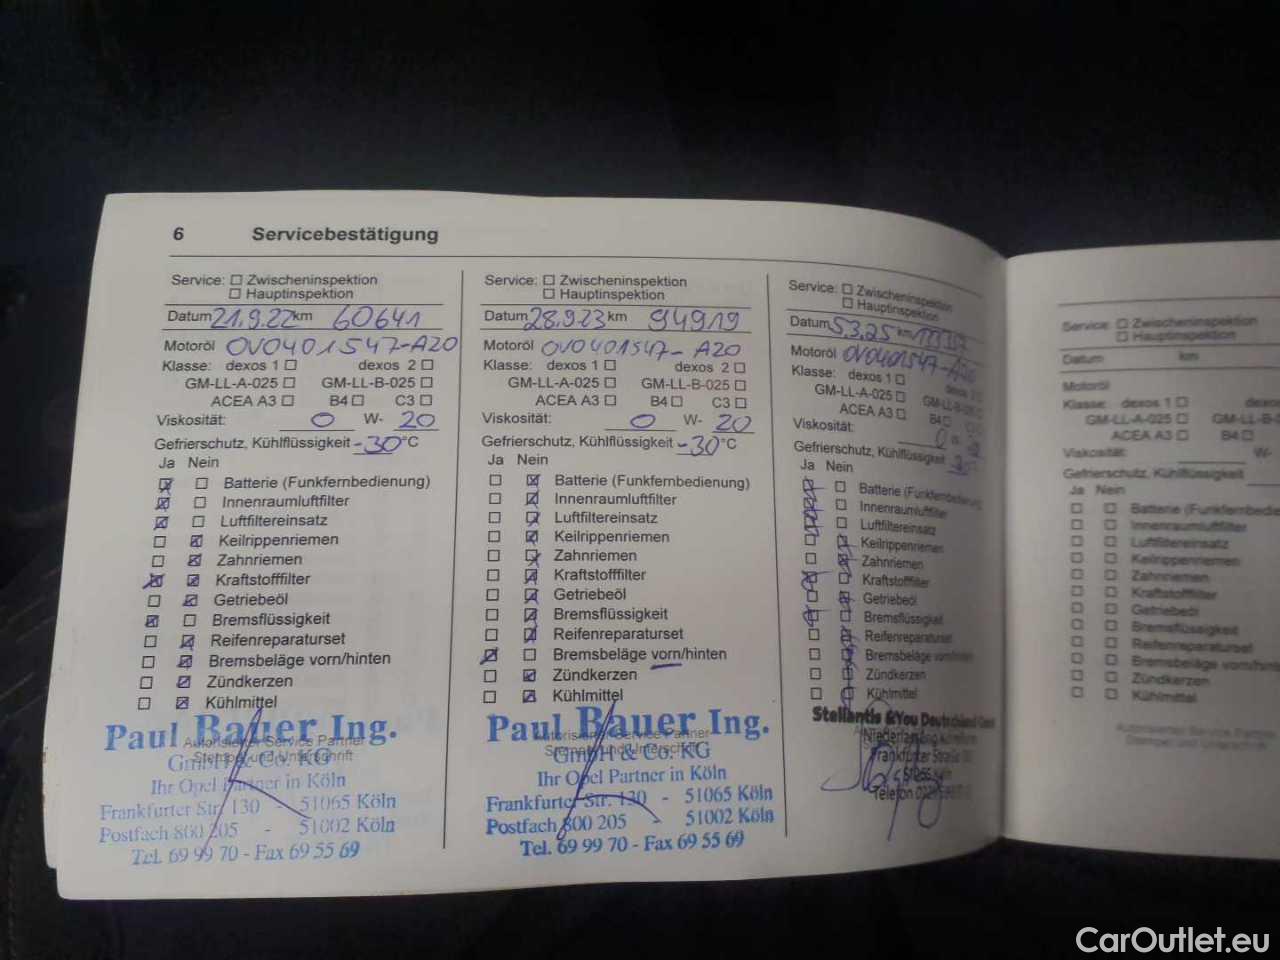 6 Servicebestätigung
Service: Zwischeninspektion
Hauptinspektion
Datum 21.9.22 km 60641
Motoröl OVO401547-A20
Klasse: dexos 1 dexos 2
GM-LL-A-025 GM-LL-B-025
ACEA A3 B4 C3
Viskosität: 0 W- 20
Gefrierschutz, Kühlflüssigkeit -30 °C
Ja Nein
Batterie (Funkfernbedienung)
Innenraumluftfilter
Luftfiltereinsatz
Keilrippenriemen
Zahnriemen
Kraftstofffilter
Getriebeöl
Bremsflüssigkeit
Reifenreparaturset
Bremsbeläge vorn/hinten
Zündkerzen
Kühlmittel
Autorisierter Service Partner
Stempel und Unterschrift
Paul Bauer Ing.
GmbH & Co. KG
Ihr Opel Partner in Köln
Frankfurter Str. 130 - 51065 Köln
Postfach 800 205 - 51002 Köln
Tel. 69 99 70 - Fax 69 55 69
Service: Zwischeninspektion
Hauptinspektion
Datum 28.9.23 km 94919
Motoröl OVO401547-A20
Klasse: dexos 1 dexos 2
GM-LL-A-025 GM-LL-B-025
ACEA A3 B4 C3
Viskosität: 0 W- 20
Gefrierschutz, Kühlflüssigkeit -30 °C
Ja Nein
Batterie (Funkfernbedienung)
Innenraumluftfilter
Luftfiltereinsatz
Keilrippenriemen
Zahnriemen
Kraftstofffilter
Getriebeöl
Bremsflüssigkeit
Reifenreparaturset
Bremsbeläge vorn/hinten
Zündkerzen
Kühlmittel
Autorisierter Service Partner
Stempel und Unterschrift
Paul Bauer Ing.
GmbH & Co. KG
Ihr Opel Partner in Köln
Frankfurter Str. 130 - 51065 Köln
Postfach 800 205 - 51002 Köln
Tel. 69 99 70 - Fax 69 55 69
Service: Zwischeninspektion
Hauptinspektion
Datum 5.3.25 km
Motoröl OVO401547-A20
Klasse: dexos 1 dexos 2
GM-LL-A-025 GM-LL-B-025
ACEA A3 B4
Viskosität: 0 W-
Gefrierschutz, Kühlflüssigkeit
Ja Nein
Batterie (Funkfernbedienung)
Innenraumluftfilter
Luftfiltereinsatz
Keilrippenriemen
Zahnriemen
Kraftstofffilter
Getriebeöl
Bremsflüssigkeit
Reifenreparaturset
Bremsbeläge vorn/hinten
Zündkerzen
Kühlmittel
Stellantis &You Deutschland GmbH
Niederlassung
Frankfurter Straße
Telefon
Service: Zwischeninspektion
Hauptinspektion
Datum km
Motoröl
Klasse: dexos 1
GM-LL-A-025
ACEA A3 B4
Viskosität: W-
Gefrierschutz, Kühlflüssigkeit
Ja Nein
Innenraumluftfilter
Luftfiltereinsatz
Keilrippenriemen
Zahnriemen
Kraftstofffilter
Getriebeöl
Bremsflüssigkeit
Reifenreparaturset
Bremsbeläge
Zündkerzen
Kühlmittel
Autorisierter Service Partner
Stempel und Unterschrift
CarOutlet.eu